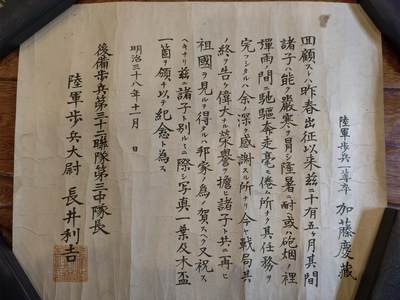 陸軍歩兵一等卒 加藤慶藏
回顧スレハ昨春出征以来茲ニ十有五ヶ月其間
諸子ハ能ク嚴寒ヲ冒シ隆暑ニ耐ヘ或ハ砲烟裡
彈雨ノ間ニ馳驅奔走毫モ倦ム所ナク其任務ヲ
完フシタルハ余ノ深ク感謝スル所ナリ今ヤ戰局其
ノ終ヲ告ケ偉大ノ榮譽ヲ擔ヒ諸子ト共ニ再ヒ
祖國ヲ見ルヲ得タルハ邦家ノ為メ賀スヘク又祝ス
ヘキナリ茲ニ諸子ト別ルヽニ際シ写真一葉及木盃
一箇ヲ頒チ以テ紀念ト為ス
明治三十八年十一月 日
後備歩兵第三十二聯隊第三中隊長
陸軍歩兵大尉 長井利吉